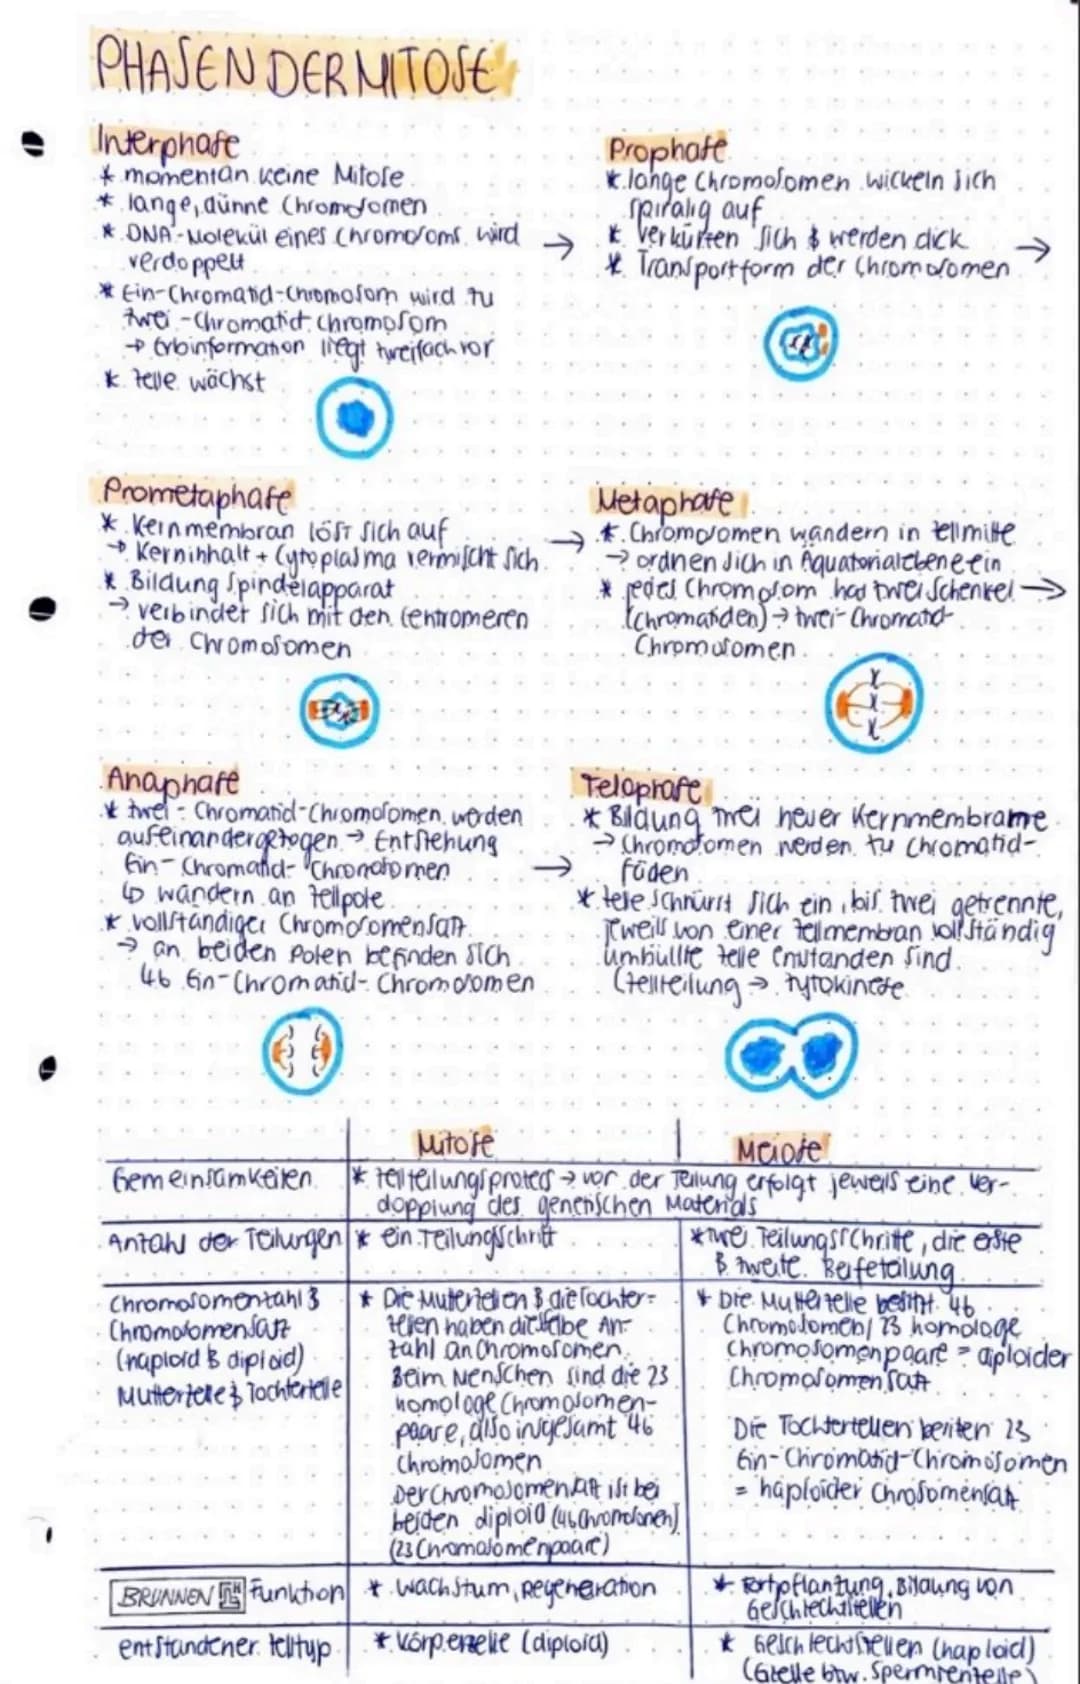 PHASEN DER MITOSE
Interphase
* momentan keine Mitose
* lange, dünne Chromosomen
* DNA-Molekül eines Chromosoms wird
verdoppelt
* Ein-Chromatid-Chromosom wird zu
zwei-Chromatid chromosom
→ Erbinformation liegt zweifach vor
* zelle wächst
→
Prophase
* lange Chromosomen wickeln sich
spiralig auf
* verkürzen sich & werden dick
* Transportform der Chromosomen
→
Prometaphase
* Kernmembran löst sich auf
→ Kerninhalt + Cytoplasma vermischt sich
* Bildung Spindelapparat
→ verbindet sich mit den Centromeren
der Chromosomen
→
Metaphase
* Chromosomen wandern in zellmitte
→ ordnen sich in Äquatorialebene ein
* jedes Chromosom has zwei Schenkel →
(Chromatiden) → zwei-Chromatid-
Chromosomen
Anaphase
* zwei-Chromatid-Chromosomen werden
auseinandergezogen → Entstehung
Ein-Chromatid-Chromosomen
↳ wandern an zellpole
* vollständiger Chromosomensatz
→ an beiden Polen befinden sich
46 Ein-Chromatid-Chromosomen
→
Telophase
* Bildung zwei neuer Kernmembrane
→ Chromosomen werden zu Chromatid-
fäden
* zelle schnürt sich ein, bis zwei getrennte,
jeweils von einer zellmembran vollständig
umhüllte zelle enstanden sind
(zellteilung → zytokinese
Mitose
Meiose
Gemeinsamkeiten
* zellteilungsprozess → vor der Teilung erfolgt jeweils eine Ver-
dopplung des genetischen Materials
Anzahl der Teilungen
* ein Teilungsschritt
* zwei Teilungsschritte, die erste
& zweite
Chromosomenzahl &
Chromosomensatz
(haploid & diploid)
Mutterzelle & Tochterzelle
* Die Mutterzellen & die Tochter-
zellen haben dieselbe An-
zahl an Chromosomen.
Beim Menschen sind die 23
homologe Chromosomen-
paare, also insgesamt 46
Chromosomen
Der Chromosomensatz ist bei
beiden diploid (46 Chromosomen)
(23 Chromosomenpaare)
* Die Mutterzelle besitzt 46
Chromosomen / 23 homologe
Chromosomenpaare = diploider
Chromosomensatz
Die Tochterzellen besitzen 23
Ein-Chromatid-Chromosomen
= haploider Chrosomensatz
BRUNNEN
Funktion
* Wachstum, Regeneration
* Fortpflanzung, Bildung von
Geschlechtszellen
entstandener zelltyp
* Körperzelle (diploid)
* Geschlechtszellen (haploid)
(Eizelle bzw. Spermienzelle)